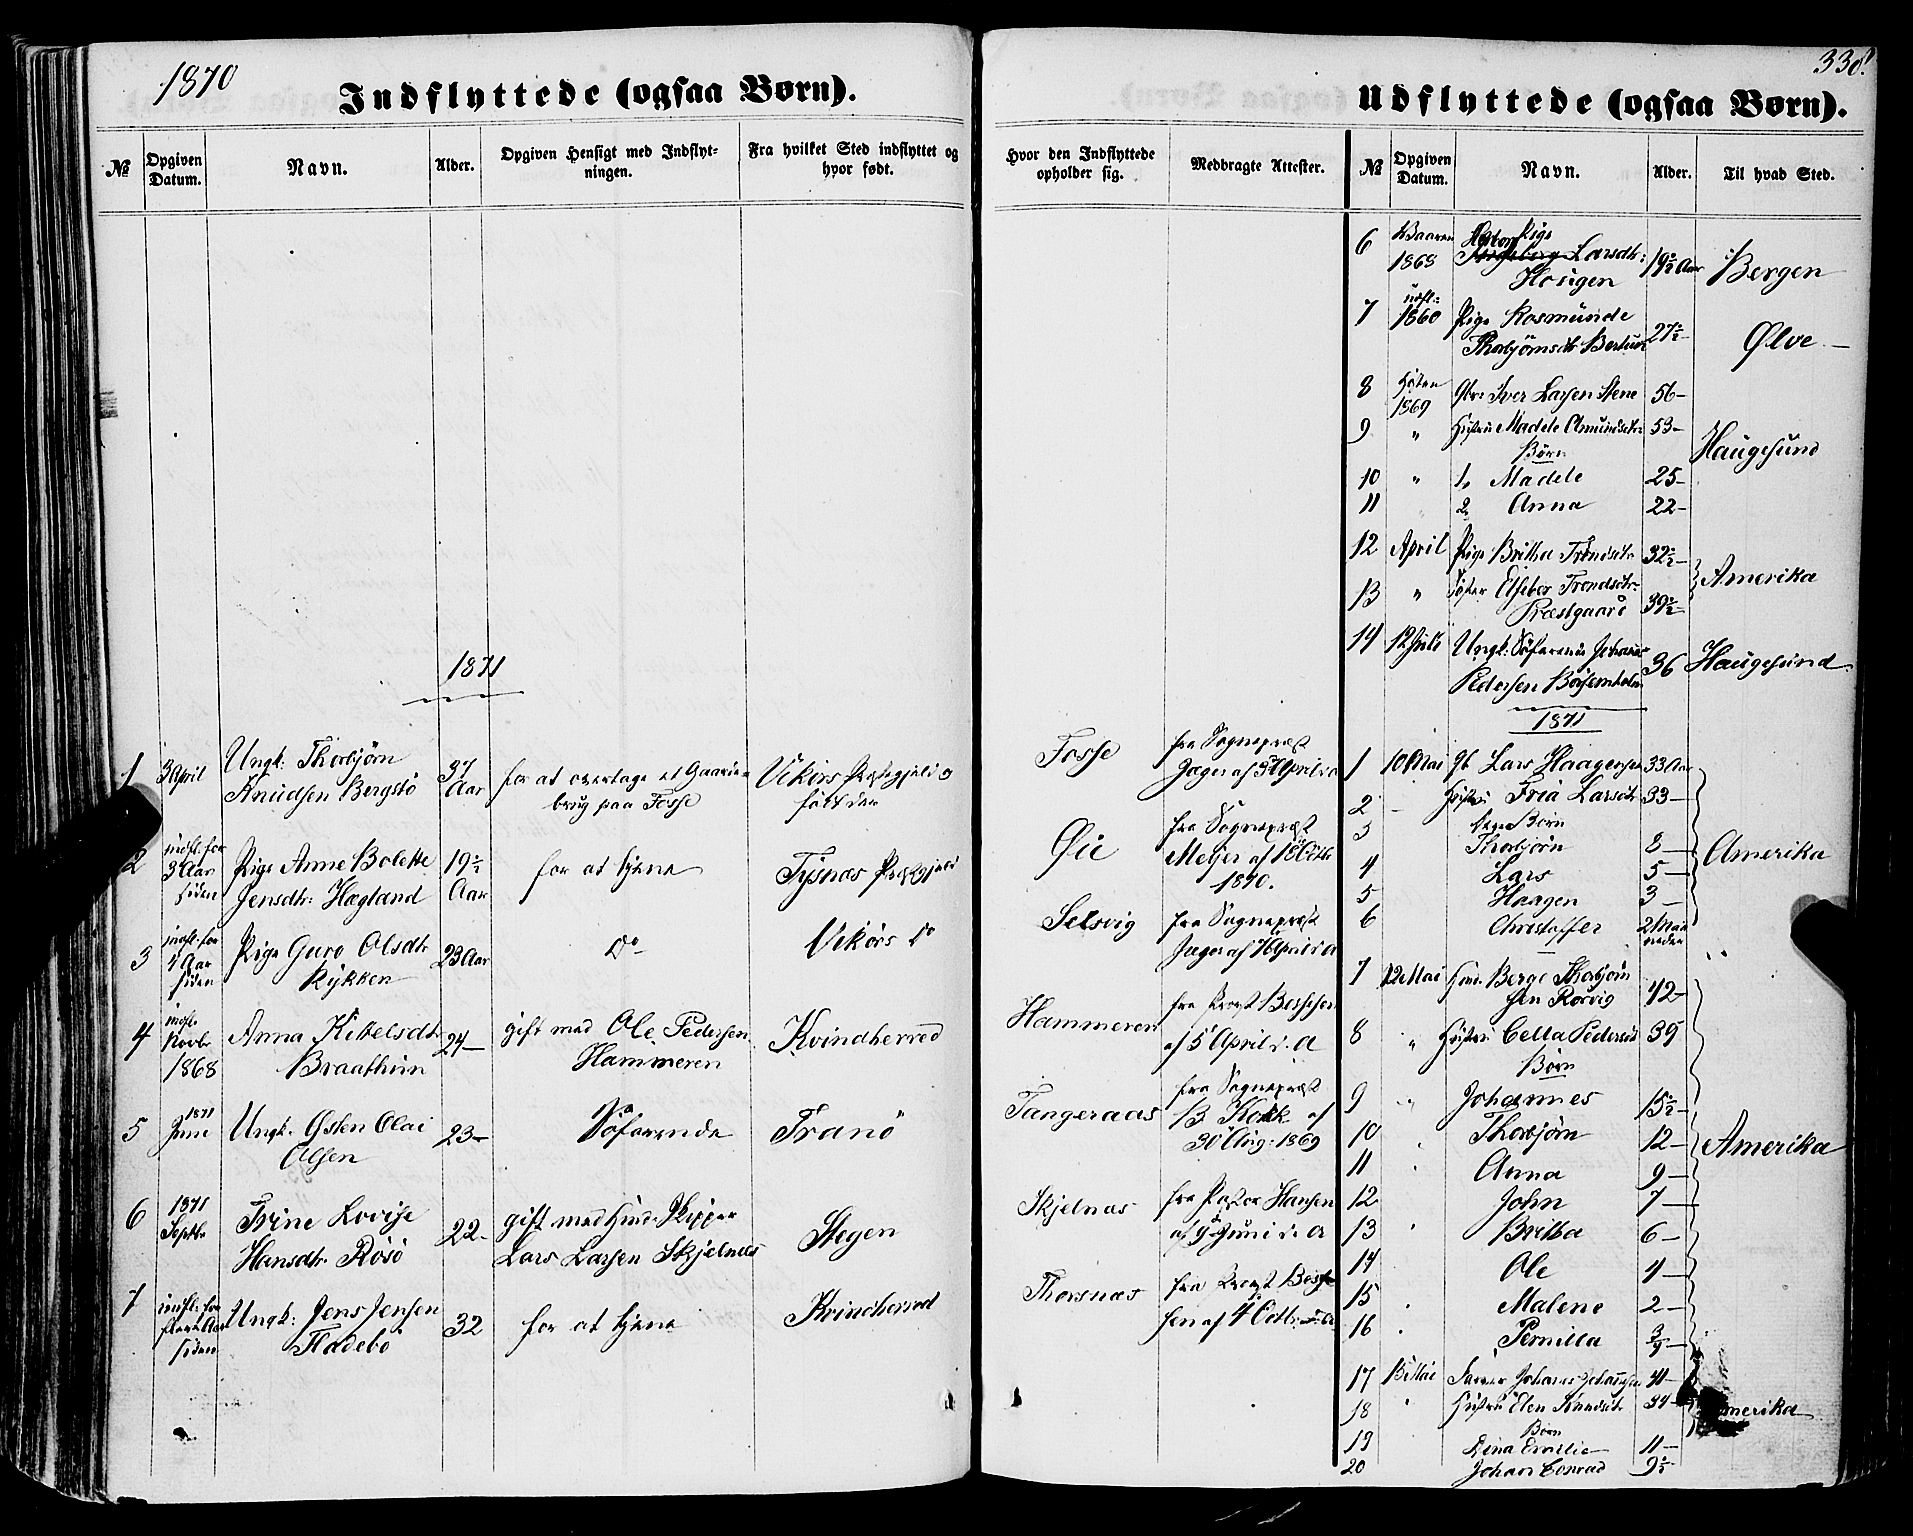 1870
Indflyttede (ogsaa Børn).
№
Opgiven Datum.
Navn.
Alder.
Opgiven Hensigt med Indflyt-
ningen.
Fra hvilket Sted indflyttet og
hvor født.
1871
1 3 April Ungk: Thorbjörn
Knudsen Bergstö
37 Aar
for at overtage et Gaards-
brug paa Fosse
Vikörs
født der
2 indfl. for
3 Aar
siden
Pige Anne Bolette
Jensdtr: Hægland
19½
Aar
for at tjene
Tysnæs
3 indfl. for
4 Aar
siden
Pige Guro Olsdtr
Rykken
23 Aar
do
Vikörs do
4 indfl.
Novbr
1868
Anna Kitelsdtr
Braathun
24
gift med Ole Pedersen
Hammeren
Kvindherred
5 1871
Juni
Ungk. Osten Olai
Olsen
23
Söfarende
Tranö
6 1871
Septbr
Trine Lovise
Hansdtr. Rösö
22
gift med Skipper
Lars Larsen Skjelnæs
Stegen
7 indfl. for
flere Aar
siden
Ungk: Jens Jensen
Fladebö
32
for at tjene
Kvindherred
338.
Udflyttede (ogsaa Børn).
Hvor den Indflyttede
opholder sig.
Medbragte Attester.
№
Opgiven Datum.
Navn.
Alder.
Til hvad Sted.
Fosse
fra Sognepræst
Jæger af 3 April d. a
Øie
fra Sognepræst
Meljer af 18 Octbr
1870.
Selsvig
fra Sognepræst
Jæger af April d a
Hammeren
fra Provst
af 5 April d. A
Tangeraas
fra Sognepræst
B Kock af
30 Aug: 1869
Skjelnæs
fra Pastor Hansen
af 9 Juni d. a
Thorsnæs
fra Provst
sen af 4 Octbr.
6 1868 Pige
Larsdtr:
Hosigen
19½ Aar
Bergen
7 udfl:
1860
Pige Rosmunde
Thorbjörnsdtr
27½
Ølve
8 Høsten
1869
Iver Larsen Stene
56
9 " Hustru Madele Amundsdtr
53
Haugesund
Børn
10 " 1, Madele 25
11 2, Anna 22
12 April Pige Britha Trondsdtr 32½
13 " Söster Elsebe Trondsdtr
Præstgaard
39½
Amerika
14 12 Juli Ungk: Söfarende Johannes
Pedersen
36
Haugesund
1871
1 10 Mai Lars Haagensen 33 Aar
2 Hustru Larsdtr 33
Børn
3 Thorbjörn 8
4 Lars 5
5 Haagen 3
6 Christoffer 2 Maa
neder
Amerika
7 12 Mai Berge Thorbjörn
sen Rörvig
42
8 " Hustru Cella Pedersdtr 39
Børn
9 Johannes 15½
10 Thorbjörn 12
11 Anna 9
12 John 7
13 Britha 6
14 Ole 4
15 Malene 2
16 Pernilla
Amerika
17 13 Mai Johannes Johannesen 41
18 Hustru Elen Knudsdtr 34
Børn
19 Lina Emilie 11
20 Johan Conrad 9½
Amerika